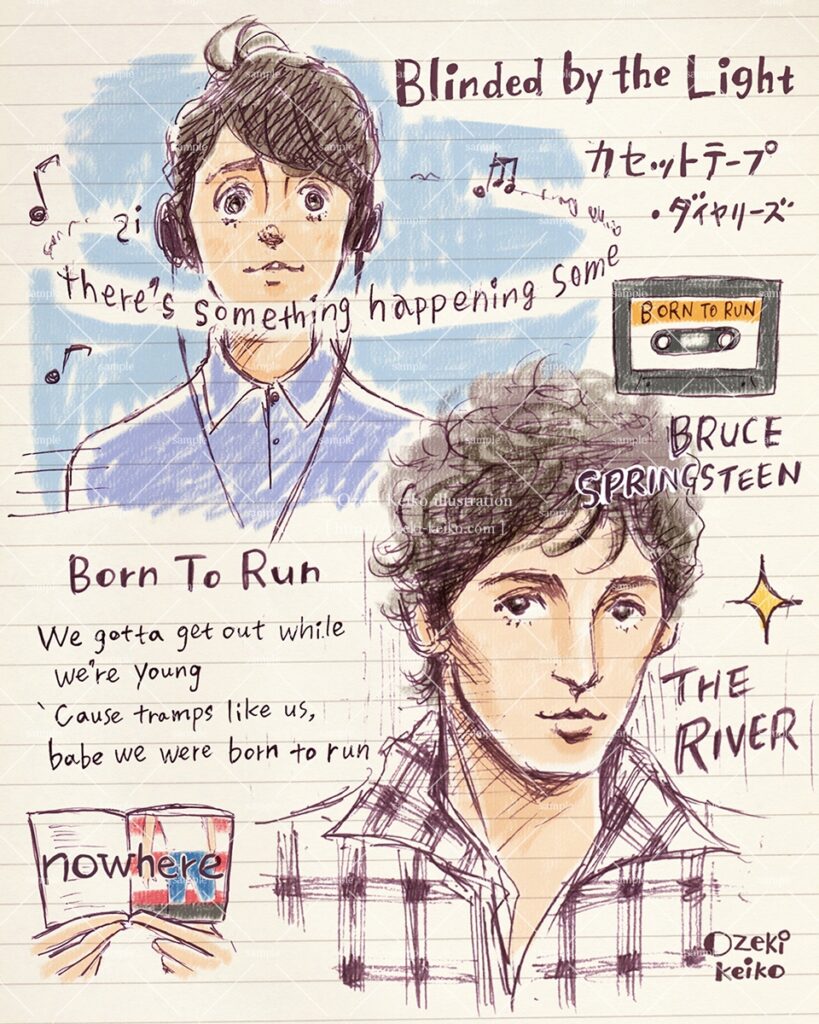 Blinded by the Light
カセットテープ
・ダイヤリーズ
there's something happening some
BORN TO RUN
BRUCE
SPRINGSTEEN
Ozeki Keiko illustration
Born To Run
We gotta get out while
we're young
`Cause tramps like us,
babe we were born to run
THE
RIVER
nowhere
Ozeki
Keiko
sample